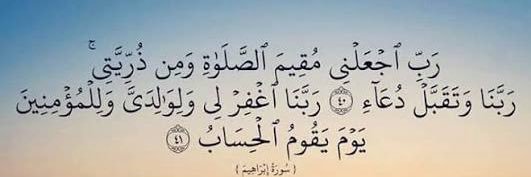 رَبِّ ٱجْعَلْنِى مُقِيمَ ٱلصَّلَوٰةِ وَمِن ذُرِّيَّتِى ۚ
رَبَّنَا وَتَقَبَّلْ دُعَآءِ ﴿٤٠﴾ رَبَّنَا ٱغْفِرْ لِى وَلِوَٰلِدَىَّ وَلِلْمُؤْمِنِينَ
يَوْمَ يَقُومُ ٱلْحِسَابُ ﴿٤١﴾
( سُورَةُ إِبْرَاهِيمَ )